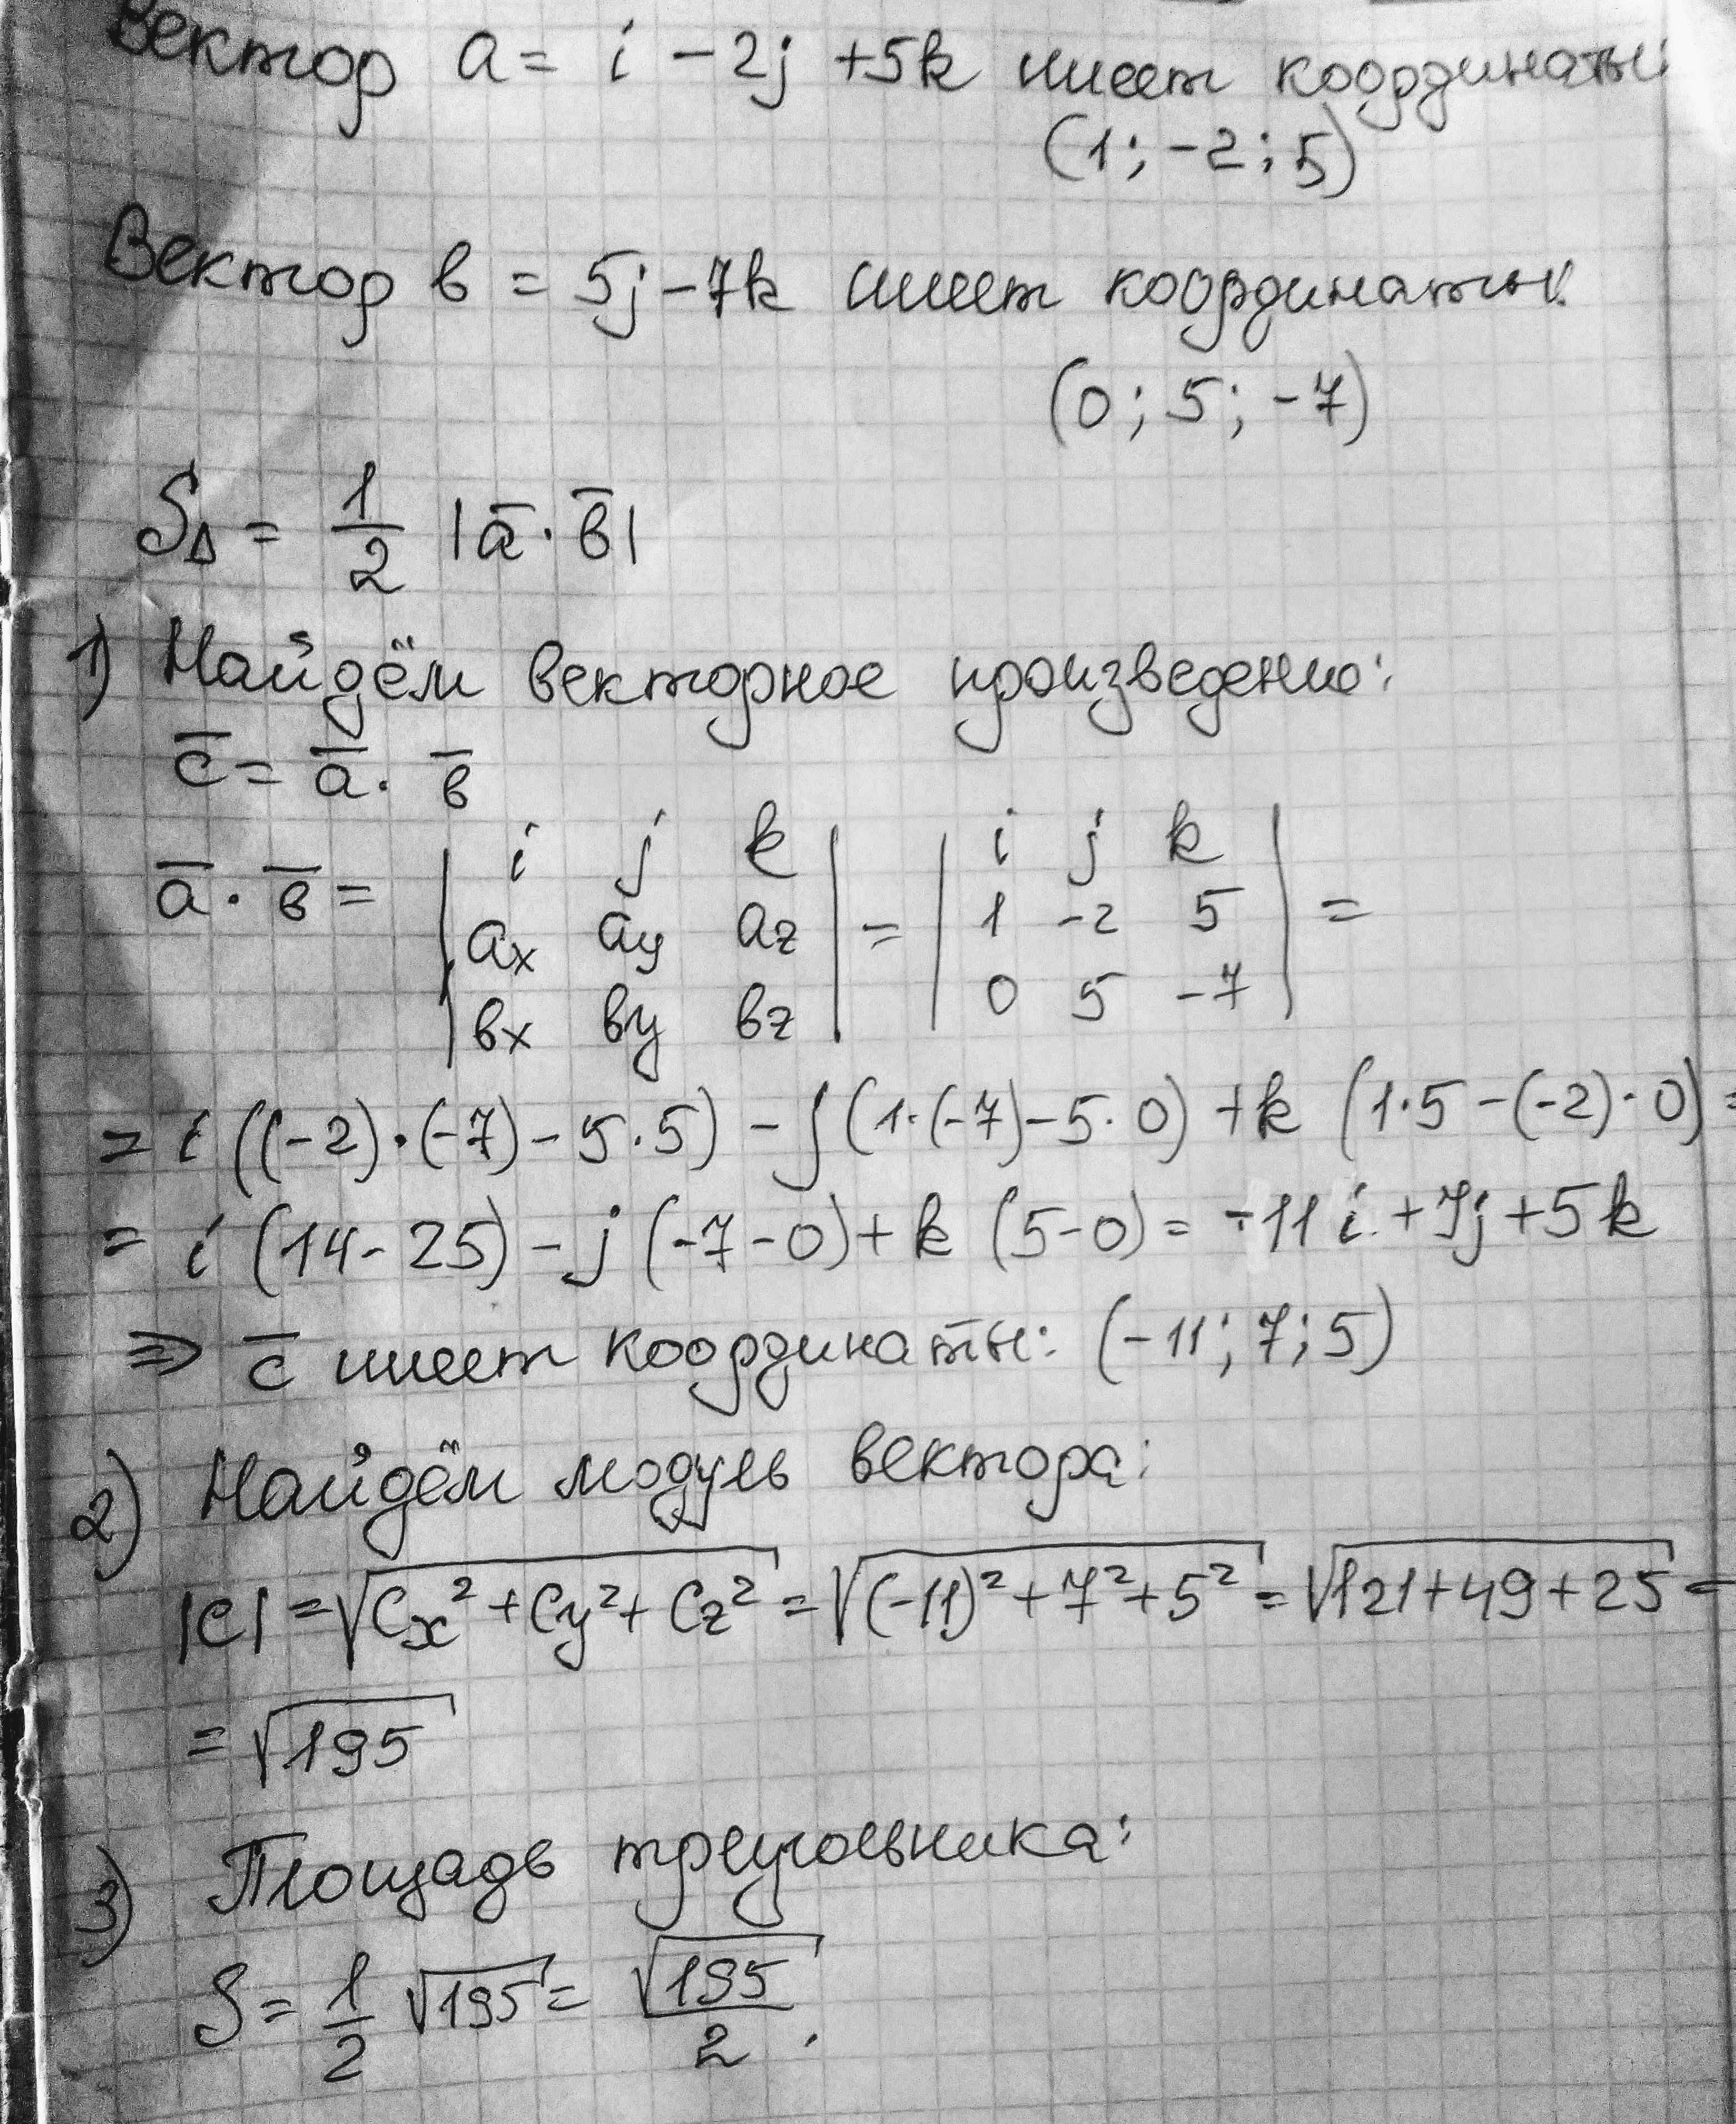 Вектор a = i - 2j + 5k имеет координаты:
(1; -2; 5)
Вектор в = 5j - 7k имеет координаты:
(0; 5; -7)
S△ = 1/2 |a̅ · в̅|
1) Найдём векторное произведение:
c̅ = a̅ · в̅
a̅ · в̅ = | i j k | = | i j k | =
| ax ay az | | 1 -2 5 |
| вx вy вz | | 0 5 -7 |
= i ((-2)·(-7) - 5·5) - j (1·(-7) - 5·0) + k (1·5 - (-2)·0) =
= i (14 - 25) - j (-7 - 0) + k (5 - 0) = -11i + 7j + 5k
⇒ c̅ имеет координаты: (-11; 7; 5)
2) Найдём модуль вектора:
|c| = √(cx² + cy² + cz²) = √((-11)² + 7² + 5²) = √(121 + 49 + 25) =
= √195
3) Площадь треугольника:
S = 1/2 √195 = √195/2.